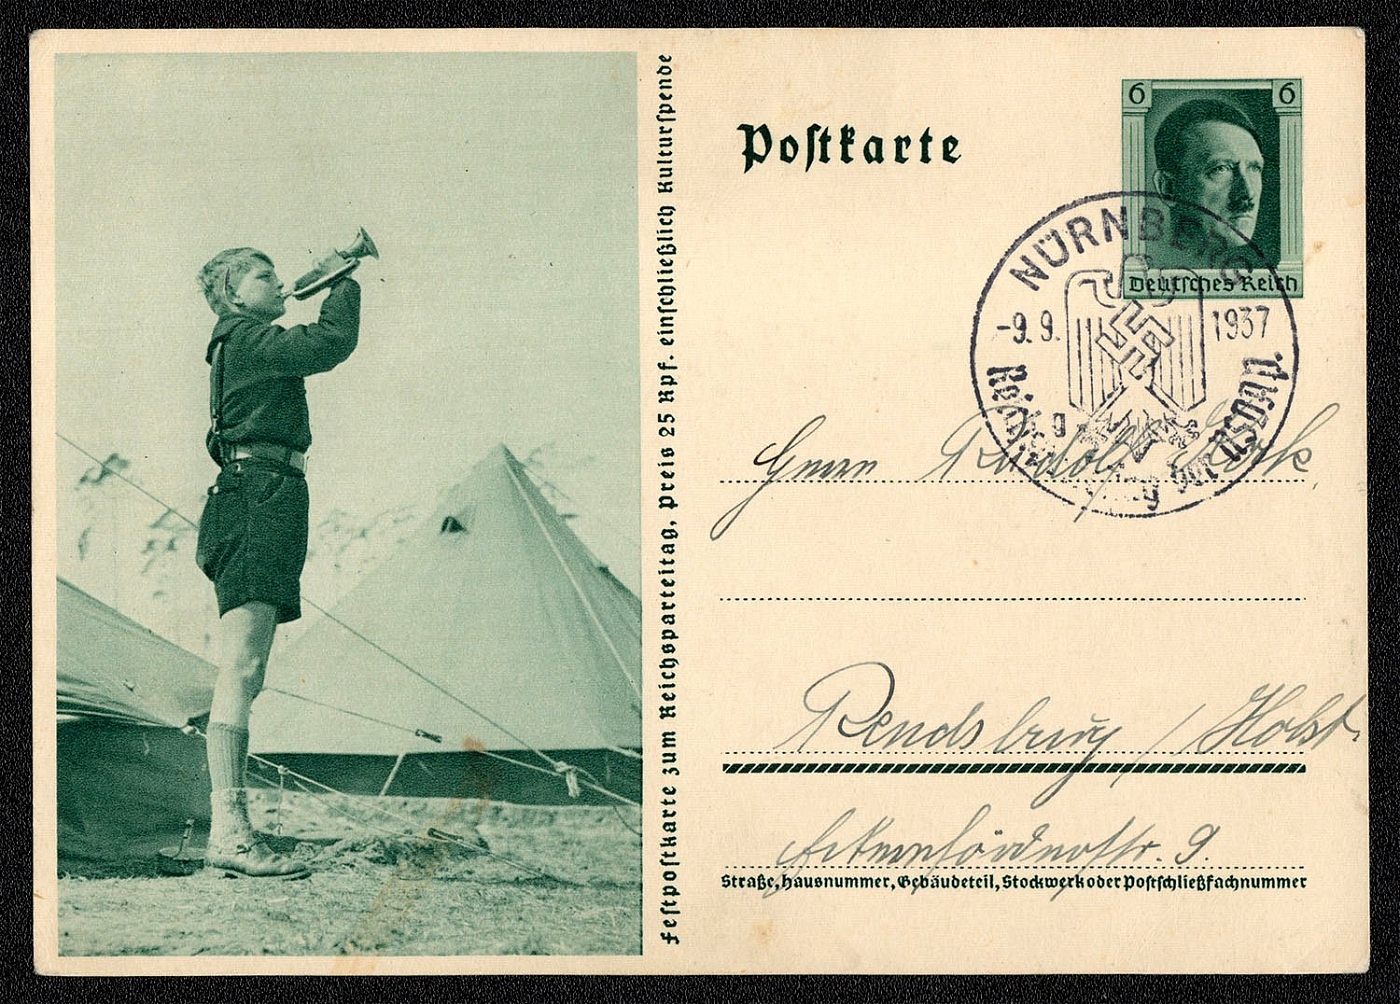 Festpostkarte zum Reichsparteitag, Preis 25 Rpf. einschließlich Kulturspende
Postkarte
6 6
Deutsches Reich
NÜRNBERG
-9.9. 1937
Reichsparteitag der NSDAP
Herrn Rudolf
Rendsburg / Holst.
Eckernfördestr. 9.
Straße, Hausnummer, Gebäudeteil, Stockwerk oder Postschließfachnummer